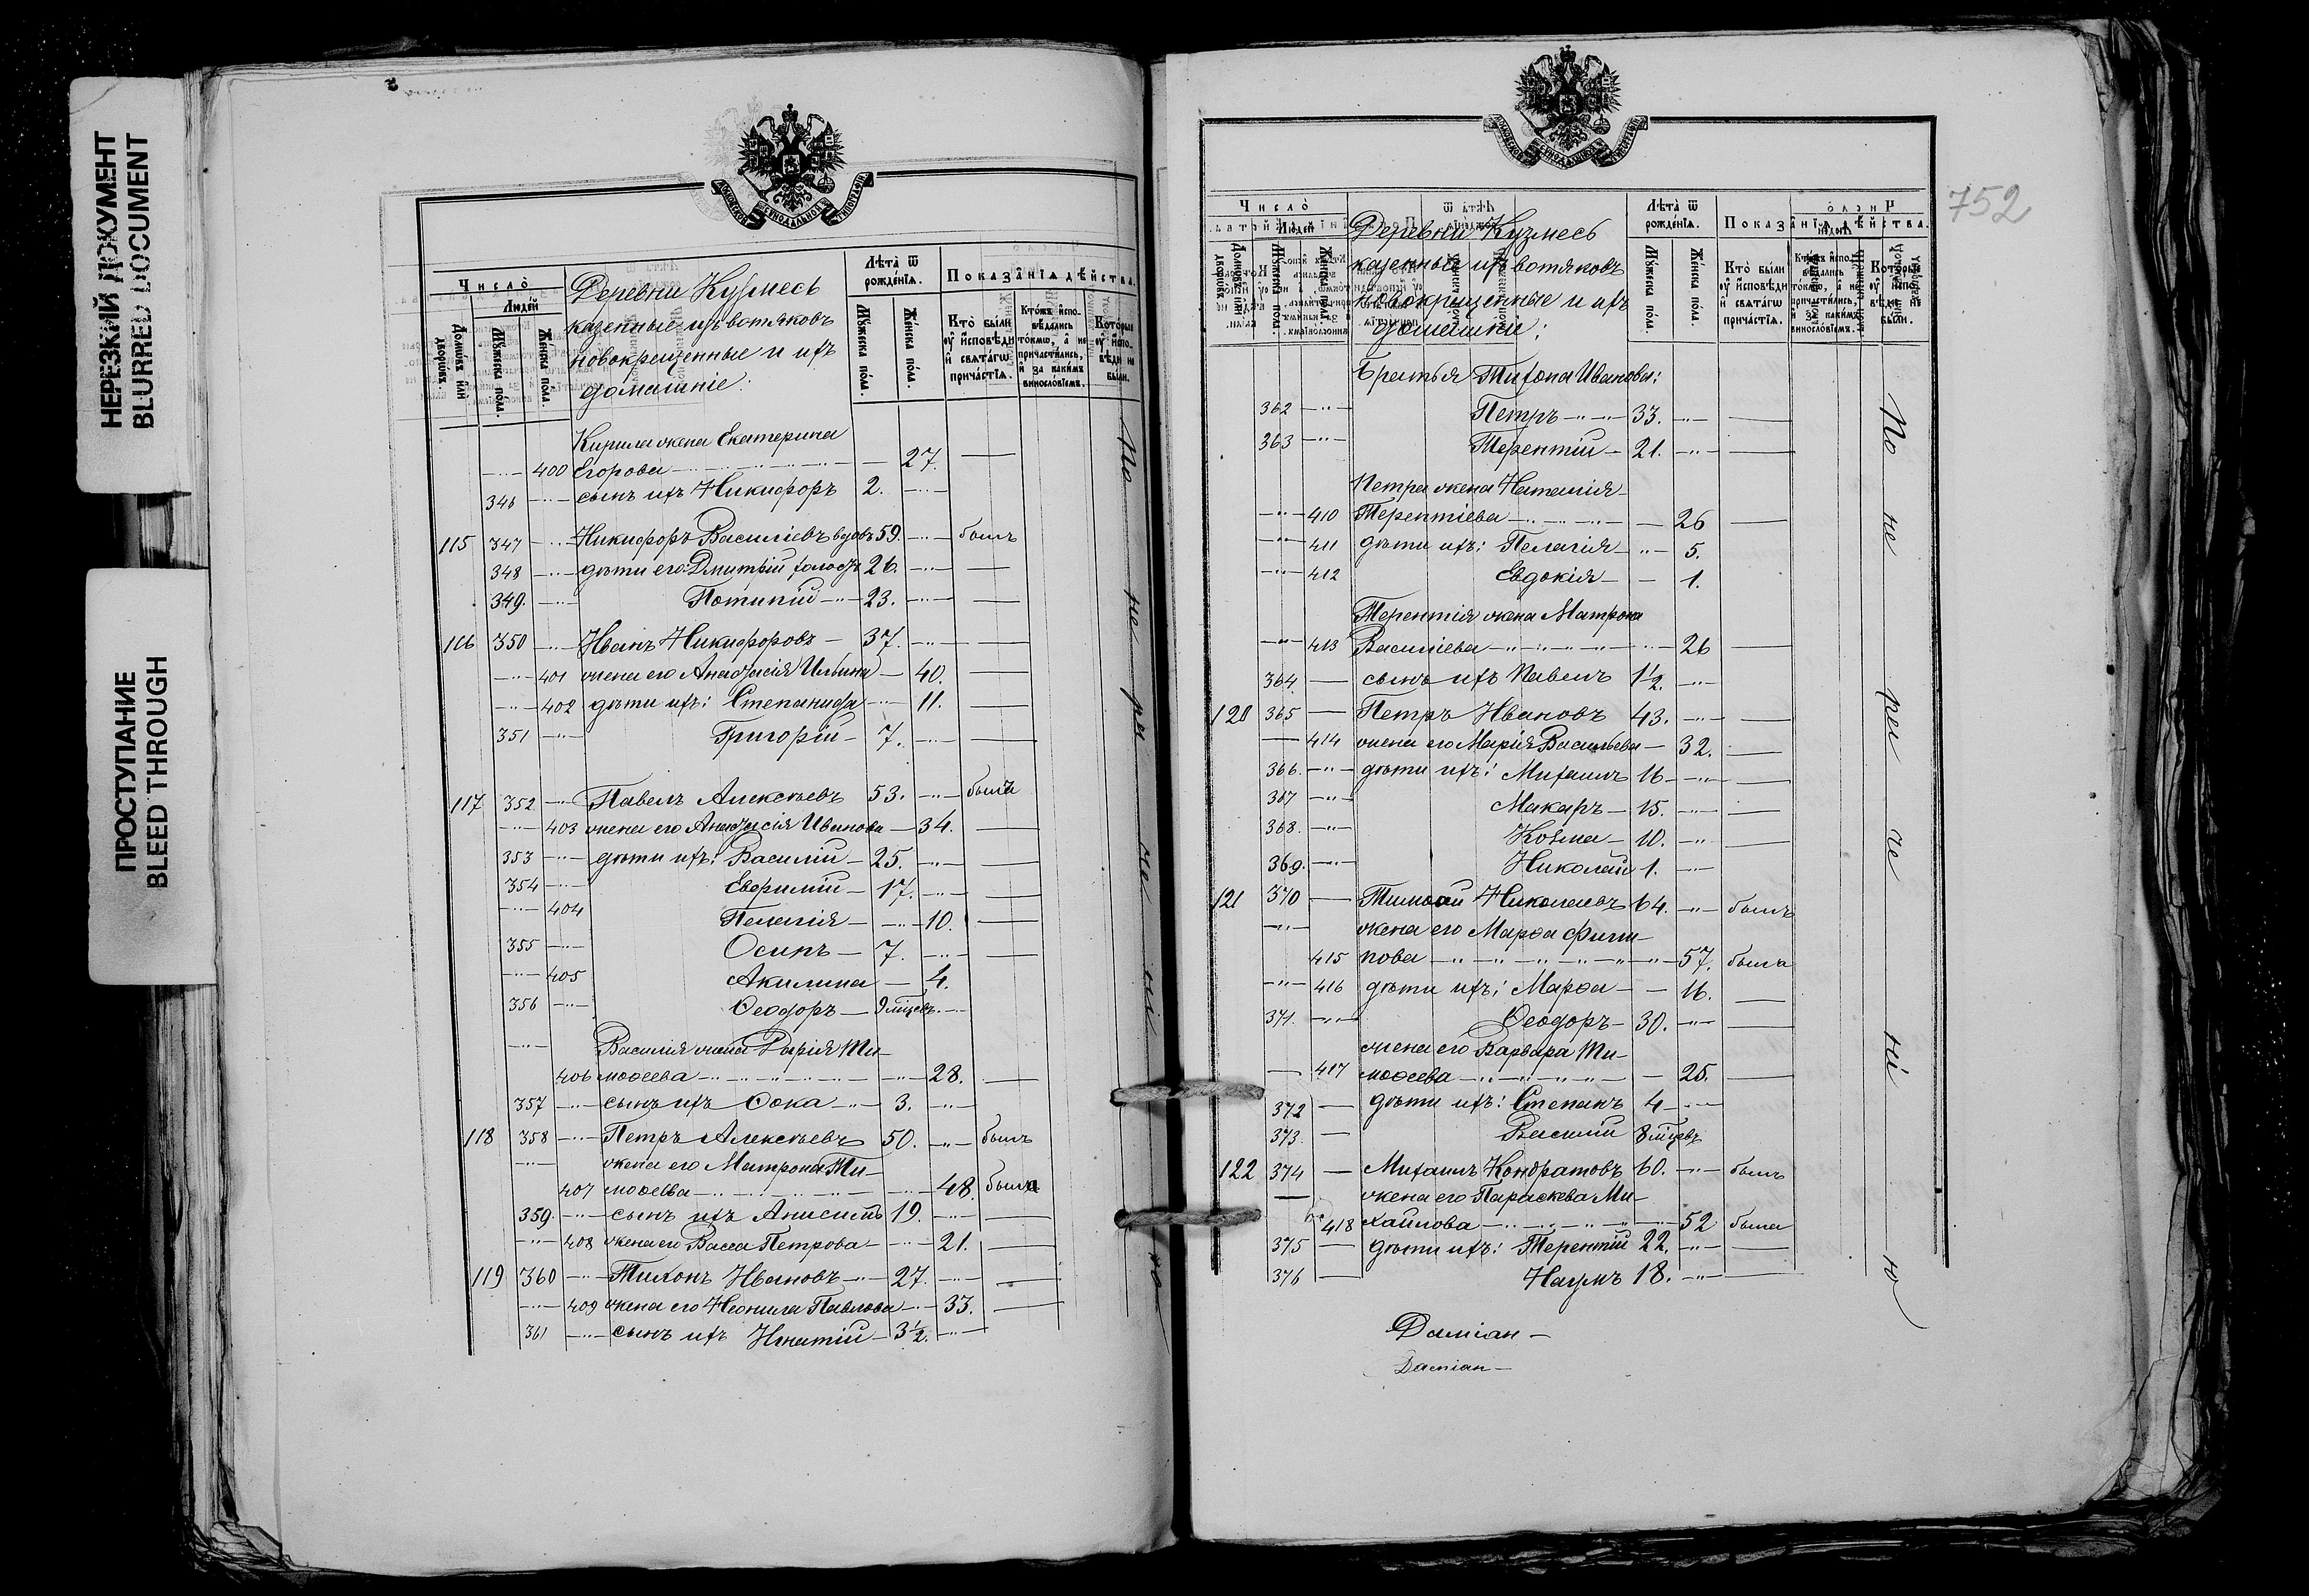 НЕРЕЗКИЙ ДОКУМЕНТ
BLURRED DOCUMENT
ПРОСТУПАНИЕ
BLEED THROUGH
МОСКОВСКОЙ СѴНОДАЛЬНОЙ ТИПОГРАФІИ
Число̀
Людей
Домѡвъ или дворѡвъ.
Мꙋжеска пола.
Женска пола.
Деревни Кузмесь
казенные изъ вотяковъ
новокрещенные и ихъ
домашніе:
Лѣта ѿ рожденїѧ.
Мꙋжеска пола.
Женска пола.
Показанїѧ дѣйства.
Кто были оу исповѣди и свѧтагѡ причастїѧ.
Ктожъ исповѣдались токмѡ, а не причастились, и за какимъ винословїемъ.
Которыи оу исповѣди не были.
Кирила жена Екатерина
—"— 400 Егорова —"— 27. —
346 —"— сынъ ихъ Никифоръ 2. —"—
115 347 —"— Никифоръ Василіевъ вдовъ 59. —"— былъ
348 —"— дѣти его: Дмитрій холостъ 26. —"— —
349. —"— Потипій —"— 23. —"— —
116 350 —"— Иванъ Никифоровъ — 37. —"— —
—"— 401 жена его Анастасія Ильина — 40. —
—"— 402 дѣти ихъ: Степанида —"— 11. —
351 —"— Григорій — 7. —"— —
117 352 —"— Павелъ Алексѣевъ 53. —"— былъ
—"— 403 жена его Анастасія Иванова — 34. —
353 —"— дѣти ихъ: Василій — 25. —"— —
354 —"— Евфимій — 17. —"— —
—"— 404 Пелагія — —"— 10. —
355 —"— Осипъ — 7. —"— —
—"— 405 Акилина — 4.
356 —"— Ѳеодоръ — 9 мѣсцевъ. —"—
—"— Василія жена Дарія Ти-
406 моѳеева —"— 28. —
357 —"— сынъ ихъ Ѳока —"— 3. —"—
118 358 —"— Петръ Алексѣевъ 50. —"— былъ
—"— жена его Матрона Ти-
407 моѳеева —"— 48. была
359. —"— сынъ ихъ Анисимъ 19. —"— —
—"— 408 жена его Васса Петрова — —"— 21. —
119 360 —"— Тихонъ Ивановъ —"— 27. —"— —
—"— 409 жена его Неонила Павлова —"— 33. —
361 —"— сынъ ихъ Игнатій — 3½. —"—
По не ра че ні ю
752
МОСКОВСКОЙ СѴНОДАЛЬНОЙ ТИПОГРАФІИ
Число̀
Людей
Домѡвъ или дворѡвъ.
Мꙋжеска пола.
Женска пола.
Деревни Кузмесь
казенные изъ вотяковъ
новокрещенные и ихъ
домашніе:
Лѣта ѿ рожденїѧ.
Мꙋжеска пола.
Женска пола.
Показанїѧ дѣйства.
Кто были оу исповѣди и свѧтагѡ причастїѧ.
Ктожъ исповѣдались токмѡ, а не причастились, и за какимъ винословїемъ.
Которыи оу исповѣди не были.
Братья Тихона Иванова:
362 —"— Петръ —"— 33. —"— —
363 —"— Терентій — 21. —"— —
Петра жена Наталія
—"— 410 Терентіева —"— — 26 —
—"— 411 дѣти ихъ: Пелагія —"— 5.
—"— 412 Евдокія — — 1.
Терентія жена Матрона
—"— 413 Василіева —"— 26 —
364. — сынъ ихъ Павелъ 1½. —"—
120 365 — Петръ Ивановъ 43. —"— —
— 414 жена его Марія Васильева — 32. —
366. —"— дѣти ихъ: Михаилъ 16 —"— —
367 —"— Макаръ — 15. —"— —
368. —"— Козма — 10. —"— —
369. —"— Николай 1. —"—
121 370 — Тимоѳей Николаевъ 64. —"— былъ
—"— жена его Марѳа Филип-
415 пова —"— 57. была
—"— 416 дѣти ихъ: Марѳа — — 16. —
371. —"— Ѳеодоръ — 30. —"— —
жена его Варвара Ти-
— 417 моѳеева —"— — 25. —
372 — дѣти ихъ: Степанъ 4 —"—
373. — Василій 8 мѣсцевъ
122 374 — Михаилъ Кондратовъ 60. —"— былъ
— жена его Параскева Ми-
418 хайлова —"— 52 была
375 — дѣти ихъ: Терентій 22. —"— —
376 — Наумъ 18. —"— —
По не ра че ні ю
Даміан —
Даміан —